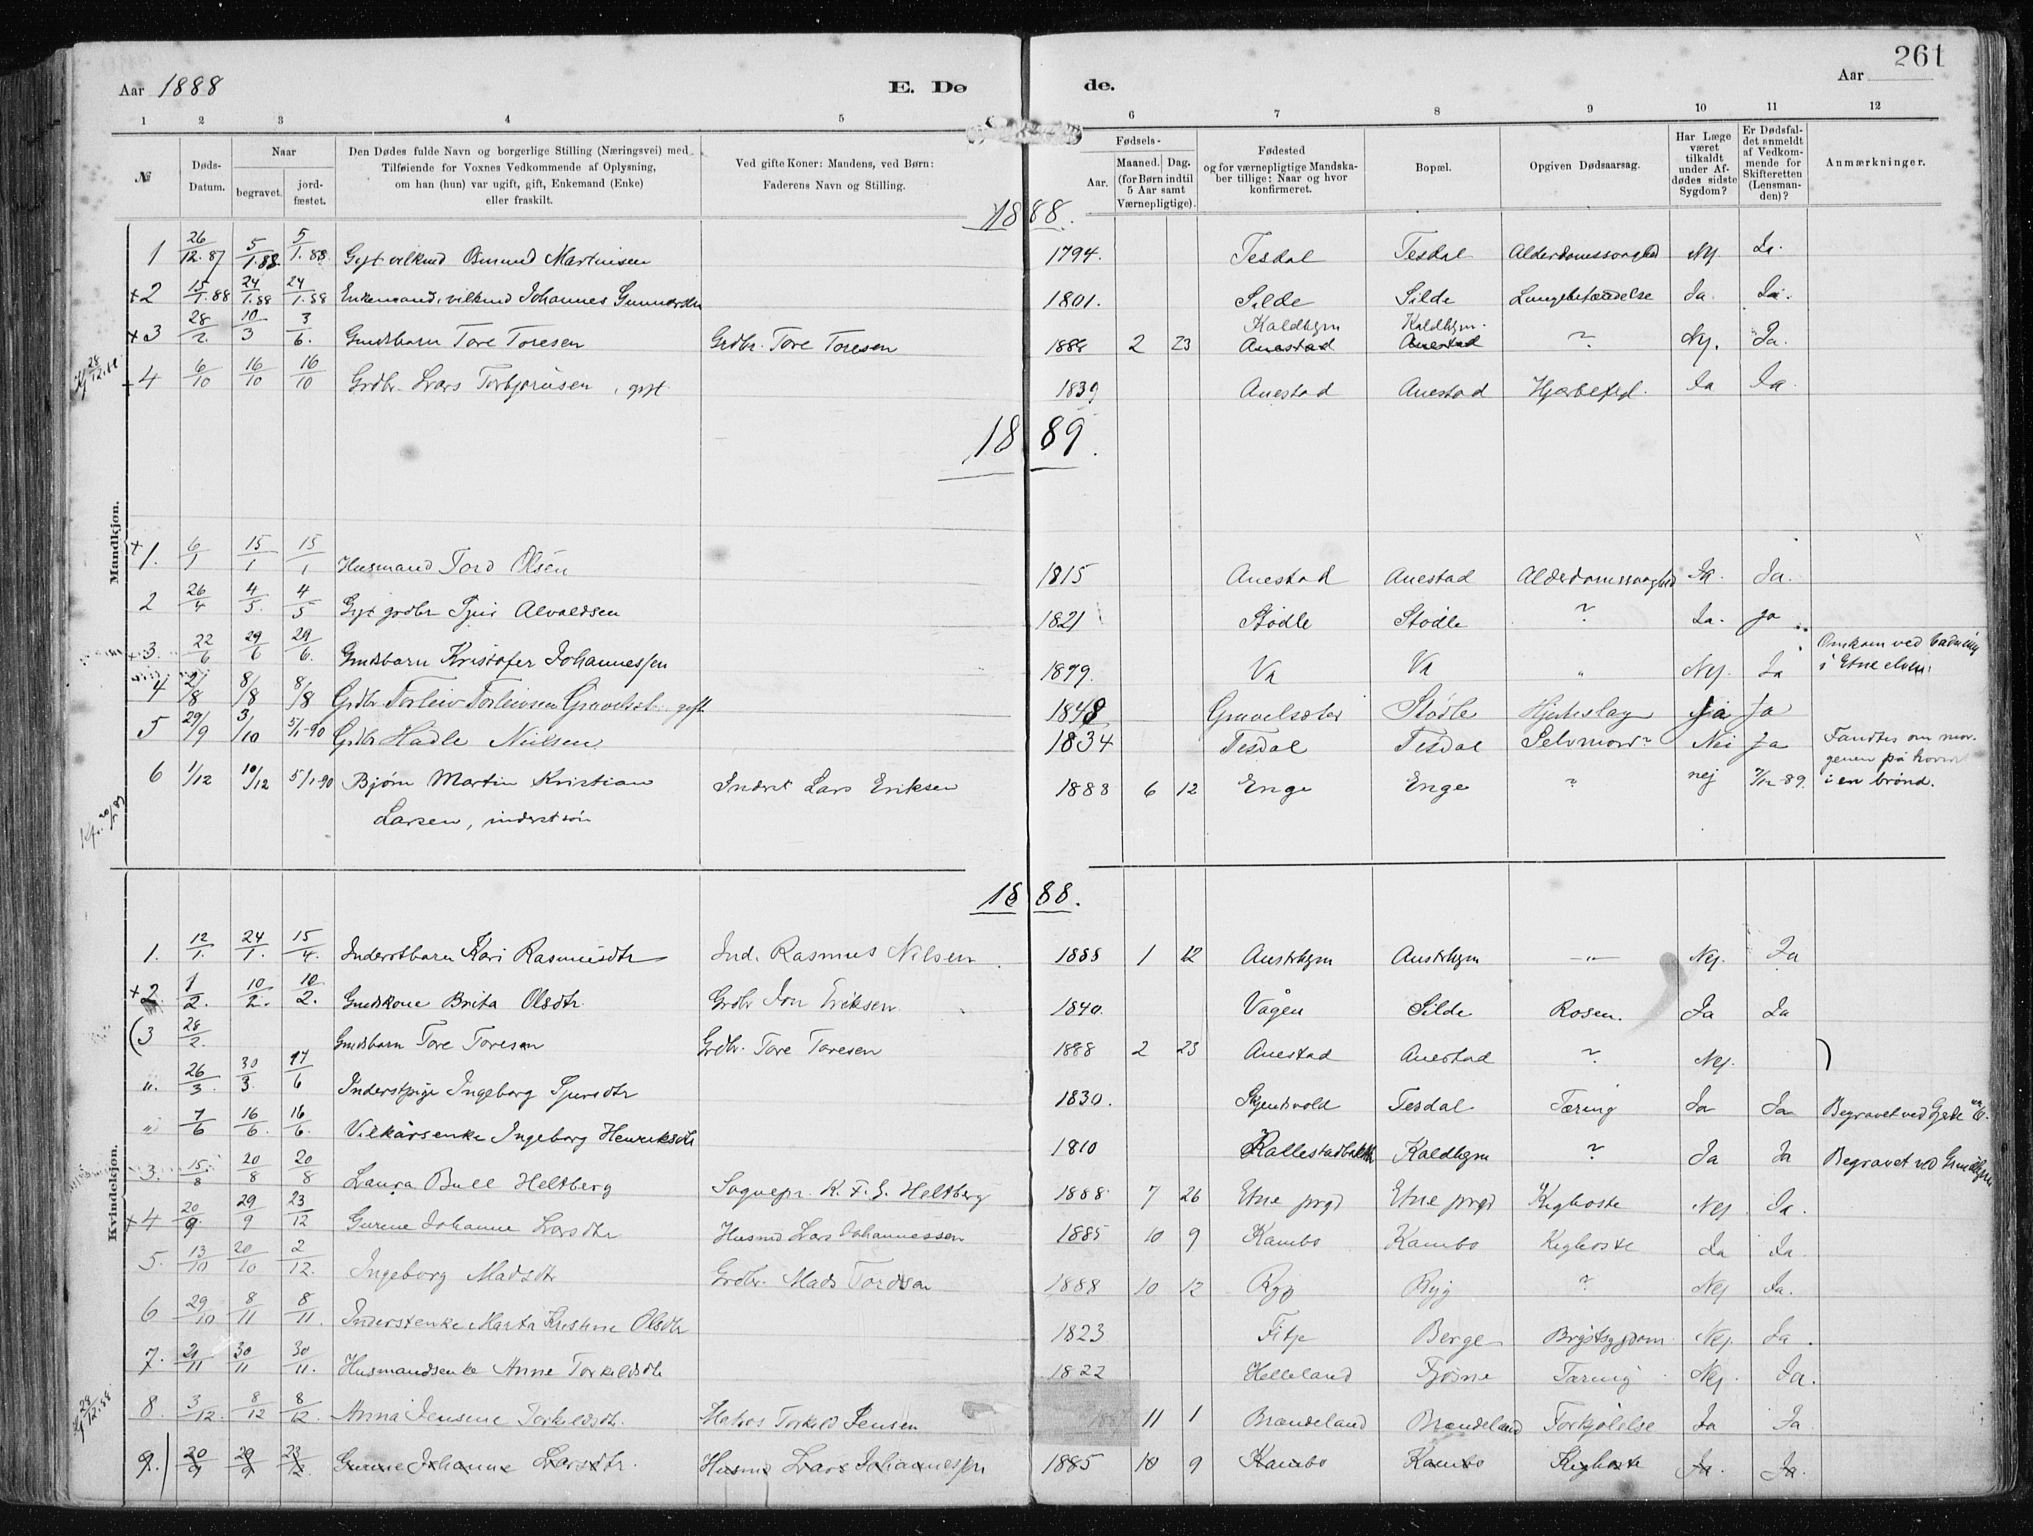 Aar 1888 E. Dø de. Aar 261
1 2 3 4 5 6 7 8 9 10 11 12
№
Døds-Datum.
Naar
begravet. jordfæstet.
Den Dødes fulde Navn og borgerlige Stilling (Næringsvei) med
Tilføiende for Voxnes Vedkommende af Oplysning,
om han (hun) var ugift, gift, Enkemand (Enke)
eller fraskilt.
Ved gifte Koner: Mandens, ved Børn:
Faderens Navn og Stilling.
Fødsels-
Aar. Maaned. Dag.
(for Børn indtil
5 Aar samt
Værnepligtige).
Fødested
og for værnepligtige Mandska-
ber tillige: Naar og hvor
konfirmeret.
Bopæl.
Opgiven Dødsaarsag.
Har Læge
været
tilkaldt
under Af-
dødes sidste
Sygdom?
Er Dødsfal-
det anmeldt
af Vedkom-
mende for
Skifteretten
(Lensman-
den)?
Anmærkninger.
Mandkjøn.
1888.
1 26/12.87 5/1.88 5/1.88 Gift vilkmd Osmund Martinsen 1794. Tesdal Tesdal Alderdomssvaghed Nej. Ja.
+2 15/1.88 24/1.88 24/1.88 Enkemand, vilkmd Johannes Gunnarsen 1801. Silde Silde Lungebetændelse Ja. Ja.
Kaldhejm Kaldhejm.
+3 28/2. 10/3 3/6. Gmdsbarn Tore Toresen Grdbr. Tore Toresen 1888 2 23 Anestad Anestad ? Nej. Ja.
+4 6/10 16/10 16/10 Grdbr. Lars Torbjørnsen, gift. 1839 Anestad Anestad Hjertefejl. Ja Ja.
1889.
+1. 6/1 15/1 15/1 Husmand Tord Olsen 1815 Anestad Anestad Alderdomssvaghed Ja. Ja.
2 26/4 4/5. 4/5 Gift grdbr Sjur Alvaldsen 1821 Stødle Stødle ? Ja. Ja
3. 22/6 29/6 29/6. Gmdsbarn Kristofer Johannessen 1879. Va Va " Nej. Ja Omkom ved badning
i Etne elven.
4 2/8 8/8 8/8 Grdbr Torleiv Torleivsen Gravelsæter gift 1848 Gravelsæter Stødle Hjerteslag Ja Ja
5 29/9 3/10 5/1-90 Grdbr Hadle Nielsen 1834 Tesdal Tesdal Selvmord? Nei Ja Fandtes om mor-
genen på hovedet
i en brønd.
6 1/12 10/12 5/1-90 Bjørn Martin Kristian Inderst Lars Eriksen 1888 6 12 Enge Enge ? nej 7/12-89.
Larsen, inderstsøn
Kvindekjøn.
1888.
1. 12/1. 24/1. 15/4. Inderstbarn Kari Rasmusdtr Ind. Rasmus Nilsen 1888 1 12 Austrhejm Austrhejm —"— Nej. Ja
+2. 1/2. 10/2. 10/2. Gmdskone Brita Olsdtr Grdbr Jon Eriksen 1840. Vågen Silde Rosen. Ja Ja
(3 28/2. Gmdsbarn Tore Toresen Grdbr. Tore Toresen 1888 2 23 Anestad Anestad ? Nej. )
". 26/3. 30/3. 17/6 Inderstpige Ingeborg Sjursdtr 1830. Skjensvold Tesdal Tæring Ja Ja Begravet ved Gjerde
" 7/6 16/6. 16/6. Vilkårsenke Ingeborg Henriksdtr 1810 Kaldhejm ? Ja Ja Begravet ved Grindhejm
3. 15/8 20/8 20/8 Laura Bull Heltberg Sognepr. K. F. G. Heltberg 1888 7 26 Etne prgd Etne prgd Kighoste Nej Ja.
+4 20/9. 29/9 23/12 Gurine Johanne Larsdtr Husmd Lars Johannessen 1885 10 9 Kambo Kambo Kighoste Ja Ja.
5. 13/10 20/10 2/12. Ingeborg Madsdtr Grdbr. Mads Tordsen 1888 10 12 Ryg Ryg ? Nej Ja.
6 29/10 8/11 8/11. Inderstenke Marta Kristine Olsdtr 1823 Fitje Berge Brystsygdom Nej. Ja.
7. 21/11 30/11 30/11. Husmandsenke Anne Torkildsdtr 1822 Helleland Fjøsne Tæring Nej. Ja.
8. 3/12. 8/12 8/12. Anna Jensine Torkildsdtr. Matros Torkild Jensen 1887 11 1 Brændeland Brændeland Forkjølelse Ja Ja
9. 20/9 29/9 23/12 Gurine Johanne Larsdtr. Husmd Lars Johannessen 1885 10 9 Kambo Kambo Kighoste Ja. Ja.